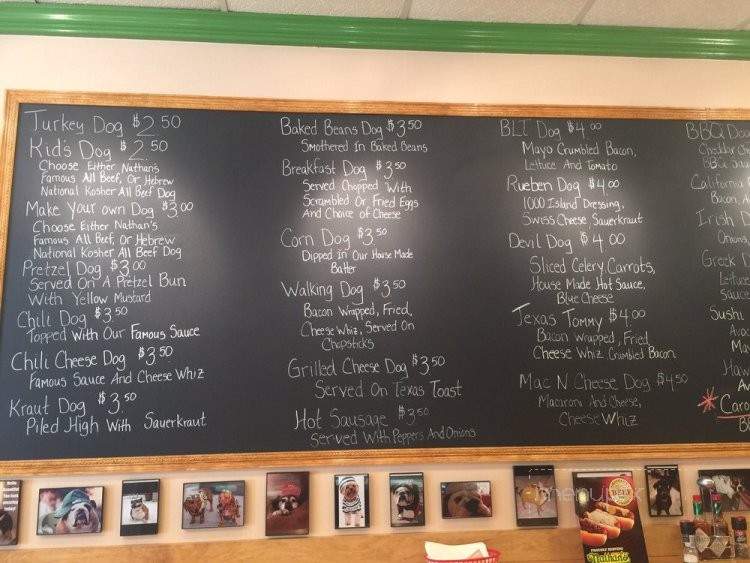 Turkey Dog $2.50
Kid's Dog $2.50
Choose Either Nathan's
Famous All Beef, Or Hebrew
National Kosher All Beef Dog
Make Your own Dog $3.00
Choose Either Nathan's
Famous All Beef, or Hebrew
National Kosher All Beef Dog
Pretzel Dog $3.00
Served On A Pretzel Bun
With Yellow Mustard
Chili Dog $3.50
Topped With Our Famous Sauce
Chili Cheese Dog $3.50
Famous Sauce And Cheese Whiz
Kraut Dog $3.50
Piled High With Sauerkraut
Baked Beans Dog $3.50
Smothered In Baked Beans
Breakfast Dog $3.50
Served Chopped With
Scrambled Or Fried Eggs
And Choice of Cheese
Corn Dog $3.50
Dipped In Our House Made
Batter
Walking Dog $3.50
Bacon Wrapped, Fried,
Cheese Whiz, Served On
Chopsticks
Grilled Cheese Dog $3.50
Served On Texas Toast
Hot Sausage $3.50
Served With Peppers And Onions
BLT Dog $4.00
Mayo Crumbled Bacon,
Lettuce And Tomato
Rueben Dog $4.00
1000 Island Dressing,
Swiss Cheese Sauerkraut
Devil Dog $4.00
Sliced Celery Carrots,
House Made Hot Sauce,
Blue Cheese
Texas Tommy $4.00
Bacon Wrapped, Fried
Cheese Whiz Crumbled Bacon
Mac N Cheese Dog $4.50
Macaroni And Cheese,
Cheese Whiz
BBQ Do
Cheddar Ch
BBQ Sau
California
Bacon, A
Irish
Onions
Greek
Lettuce
Sauce
Sushi
Avo
Ma
Haw
Caro
BEEF
Nathan's